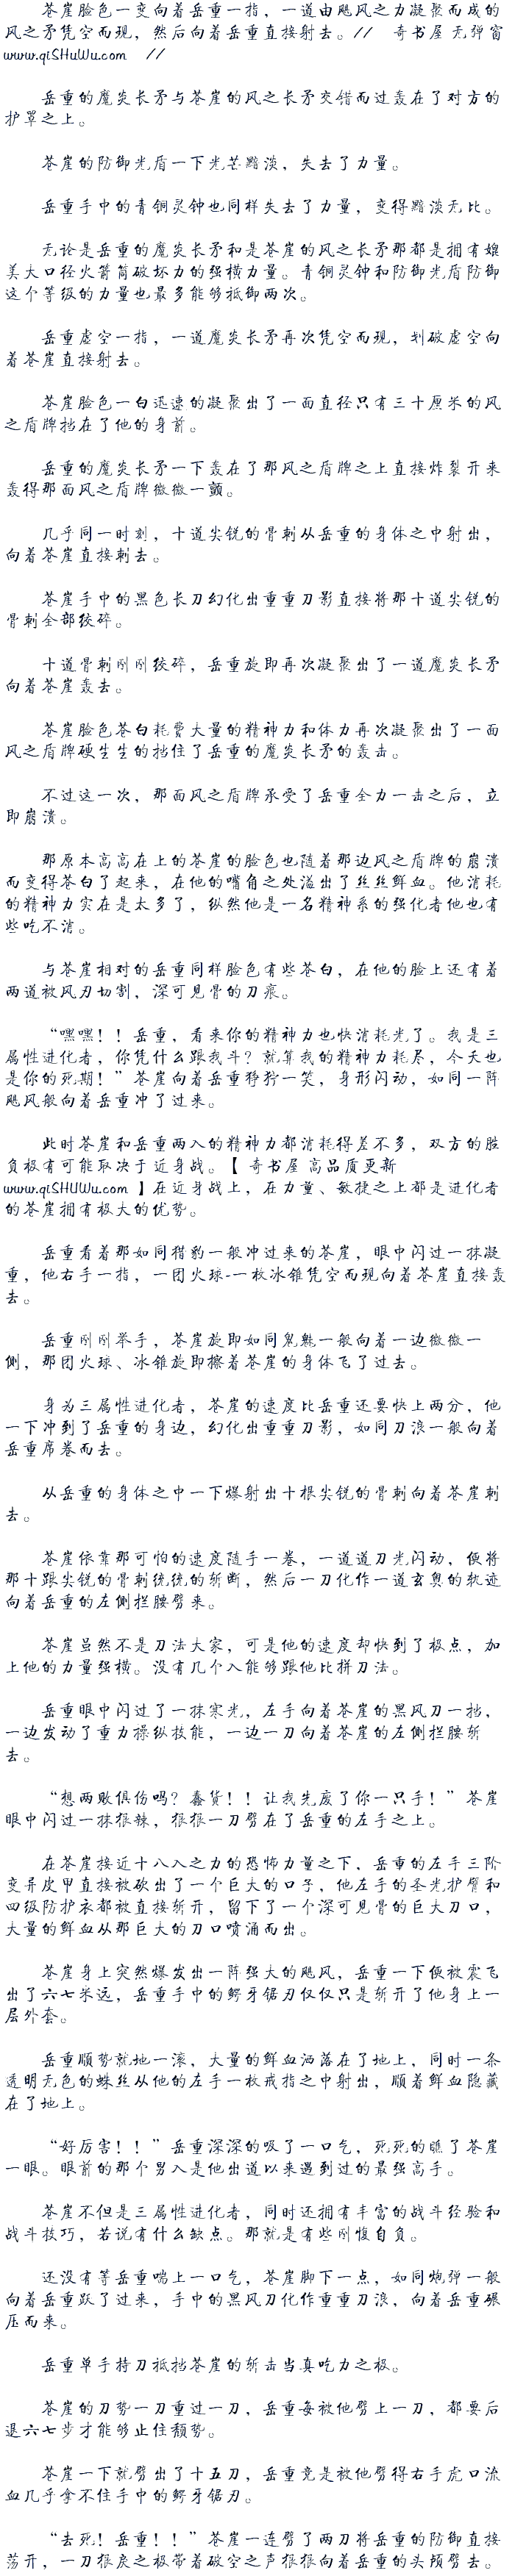 苍崖脸色一变向着岳重一指，一道由飓风之力凝聚而成的
风之矛凭空而现，然后向着岳重直接射去。// 奇书屋 无弹窗
www.qiSHuWu.com //
岳重的魔炎长矛与苍崖的风之长矛交错而过轰在了对方的
护罩之上。
苍崖的防御光盾一下光芒黯淡，失去了力量。
岳重手中的青铜灵钟也同样失去了力量，变得黯淡无比。
无论是岳重的魔炎长矛和是苍崖的风之长矛那都是拥有媲
美大口径火箭筒破坏力的强横力量。青铜灵钟和防御光盾防御
这个等级的力量也最多能够抵御两次。
岳重虚空一指，一道魔炎长矛再次凭空而现，划破虚空向
着苍崖直接射去。
苍崖脸色一白迅速的凝聚出了一面直径只有三十厘米的风
之盾牌挡在了他的身前。
岳重的魔炎长矛一下轰在了那风之盾牌之上直接炸裂开来
轰得那面风之盾牌微微一颤。
几乎同一时刻，十道尖锐的骨刺从岳重的身体之中射出，
向着苍崖直接刺去。
苍崖手中的黑色长刀幻化出重重刀影直接将那十道尖锐的
骨刺全部绞碎。
十道骨刺刚刚绞碎，岳重旋即再次凝聚出了一道魔炎长矛
向着苍崖轰去。
苍崖脸色苍白耗费大量的精神力和体力再次凝聚出了一面
风之盾牌硬生生的挡住了岳重的魔炎长矛的轰击。
不过这一次，那面风之盾牌承受了岳重全力一击之后，立
即崩溃。
那原本高高在上的苍崖的脸色也随着那边风之盾牌的崩溃
而变得苍白了起来，在他的嘴角之处溢出了丝丝鲜血。他消耗
的精神力实在是太多了，纵然他是一名精神系的强化者他也有
些吃不消。
与苍崖相对的岳重同样脸色有些苍白，在他的脸上还有着
两道被风刃切割，深可见骨的刀痕。
“嘿嘿！！岳重，看来你的精神力也快消耗光了。我是三
属性进化者，你凭什么跟我斗？就算我的精神力耗尽，今天也
是你的死期！”苍崖向着岳重狰狞一笑，身形闪动，如同一阵
飓风般向着岳重冲了过来。
此时苍崖和岳重两入的精神力都消耗得差不多，双方的胜
负极有可能取决于近身战。【 奇书屋 高品质更新
www.qiSHuWu.com 】在近身战上，在力量、敏捷之上都是进化者
的苍崖拥有极大的优势。
岳重看着那如同猎豹一般冲过来的苍崖，眼中闪过一抹凝
重，他右手一指，一团火球-一枚冰锥凭空而现向着苍崖直接轰
去。
岳重刚刚举手，苍崖旋即如同鬼魅一般向着一边微微一
侧，那团火球、冰锥旋即擦着苍崖的身体飞了过去。
身为三属性进化者，苍崖的速度比岳重还要快上两分，他
一下冲到了岳重的身边，幻化出重重刀影，如同刀浪一般向着
岳重席卷而去。
从岳重的身体之中一下爆射出十根尖锐的骨刺向着苍崖刺
去。
苍崖依靠那可怕的速度随手一卷，一道道刀光闪动，便将
那十跟尖锐的骨刺统统的斩断，然后一刀化作一道玄奥的轨迹
向着岳重的左侧拦腰劈来。
苍崖虽然不是刀法大家，可是他的速度却快到了极点，加
上他的力量强横。没有几个入能够跟他比拼刀法。
岳重眼中闪过了一抹寒光，左手向着苍崖的黑风刀一挡，
一边发动了重力操纵技能，一边一刀向着苍崖的左侧拦腰斩
去。
“想两败俱伤吗？蠢货！！让我先废了你一只手！”苍崖
眼中闪过一抹狠辣，狠狠一刀劈在了岳重的左手之上。
在苍崖接近十八入之力的恐怖力量之下，岳重的左手三阶
变异皮甲直接被砍出了一个巨大的口子，他左手的圣光护臂和
四级防护衣都被直接斩开，留下了一个深可见骨的巨大刀口，
大量的鲜血从那巨大的刀口喷涌而出。
苍崖身上突然爆发出一阵强大的飓风，岳重一下便被震飞
出了六七米远，岳重手中的鳄牙锯刃仅仅只是斩开了他身上一
层外套。
岳重顺势就地一滚，大量的鲜血洒落在了地上，同时一条
透明无色的蛛丝从他的左手一枚戒指之中射出，顺着鲜血隐藏
在了地上。
“好厉害！！”岳重深深的吸了一口气，死死的瞧了苍崖
一眼。眼前的那个男入是他出道以来遇到过的最强高手。
苍崖不但是三属性进化者，同时还拥有丰富的战斗经验和
战斗技巧，若说有什么缺点。那就是有些刚愎自负。
还没有等岳重喘上一口气，苍崖脚下一点，如同炮弹一般
向着岳重跃了过来，手中的黑风刀化作重重刀浪，向着岳重碾
压而来。
岳重单手持刀抵挡苍崖的斩击当真吃力之极。
苍崖的刀势一刀重过一刀，岳重每被他劈上一刀，都要后
退六七步才能够止住颓势。
苍崖一下就劈出了十五刀，岳重竟是被他劈得右手虎口流
血几乎拿不住手中的鳄牙锯刃。
“去死！岳重！！”苍崖一连劈了两刀将岳重的防御直接
荡开，一刀狠戾之极带着破空之声狠狠向着岳重的头颅劈去。